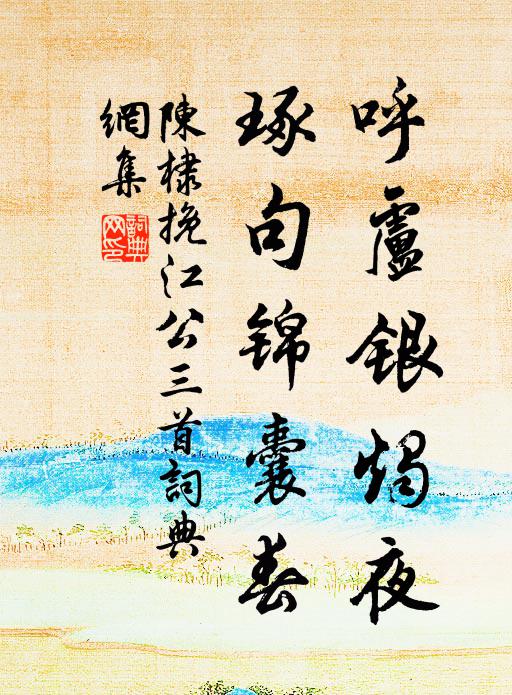 呼盧銀燭夜
琢句錦囊春
陳棣挽江公三首詞典
網集
詞典
网印